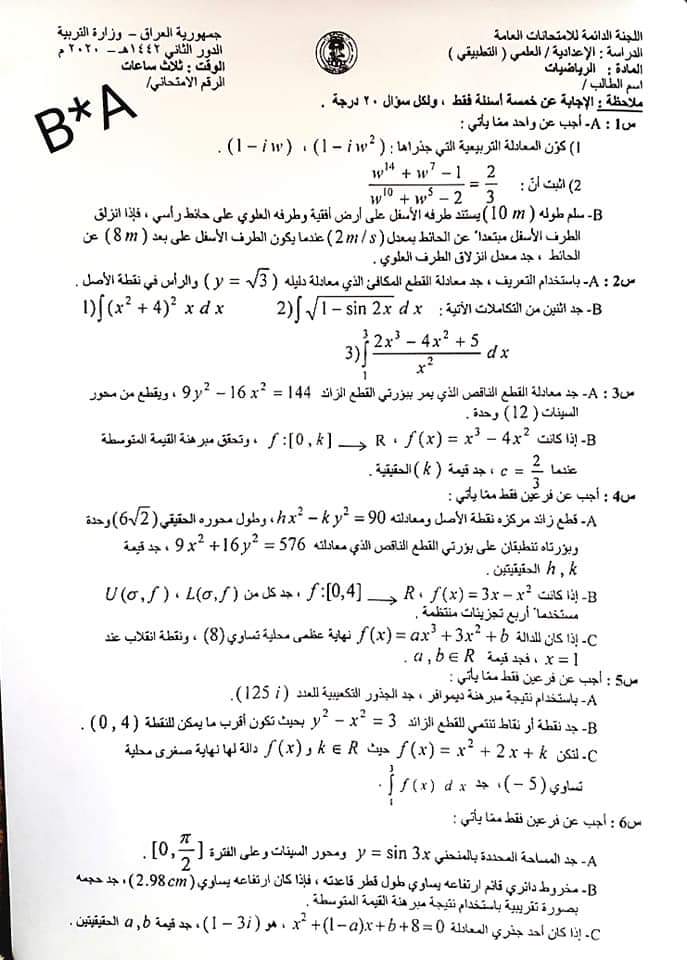 جمهورية العراق – وزارة التربية
الدور الثاني ١٤٤٢هـ - ٢٠٢٠ م
الوقت: ثلاث ساعات
الرقم الامتحاني/
اللجنة الدائمة للامتحانات العامة
الدراسة : الإعدادية / العلمي ( التطبيقي )
المادة : الرياضيات
اسم الطالب /
B*A
ملاحظة : الإجابة عن خمسة أسئلة فقط ، ولكل سؤال ٢٠ درجة .
س1 : A- أجب عن واحد ممّا يأتي :
1) كوّن المعادلة التربيعية التي جذراها : (1 – i w²) ، (1 – i w) .
2) اثبت أنّ : (w¹⁴ + w⁷ – 1)/(w¹⁰ + w⁵ – 2) = 2/3
B- سلم طوله (10 m) يستند طرفه الأسفل على أرض أفقية وطرفه العلوي على حائط رأسي ، فإذا انزلق
الطرف الأسفل مبتعداً عن الحائط بمعدل (2 m/s) عندما يكون الطرف الأسفل على بعد (8 m) عن
الحائط ، جد معدل انزلاق الطرف العلوي .
س2 : A- باستخدام التعريف ، جد معادلة القطع المكافئ الذي معادلة دليله (y = √3) والرأس في نقطة الأصل .
B- جد اثنين من التكاملات الآتية : 1) ∫(x² + 4)² x dx 2) ∫√(1 – sin 2x) dx
3) ∫₁³ (2x³ – 4x² + 5)/x² dx
س3 : A- جد معادلة القطع الناقص الذي يمر ببؤرتي القطع الزائد 9y² – 16x² = 144 ، ويقطع من محور
السينات (12) وحدة .
B- إذا كانت f(x) = x³ – 4x² ، f :[0 , k] ⟶ R ، وتحقق مبرهنة القيمة المتوسطة
عندما c = 2/3 ، جد قيمة (k) الحقيقية .
س4 : أجب عن فرعين فقط ممّا يأتي :
A- قطع زائد مركزه نقطة الأصل ومعادلته hx² – ky² = 90 ، وطول محوره الحقيقي (6√2) وحدة
وبؤرتاه تنطبقان على بؤرتي القطع الناقص الذي معادلته 9x² + 16y² = 576 ، جد قيمة
h , k الحقيقيتين .
B- إذا كانت f(x) = 3x – x² ، f:[0,4] ⟶ R ، جد كل من L(σ,f) ، U(σ,f)
مستخدماً أربع تجزيئات منتظمة .
C- إذا كان للدالة f(x) = ax³ + 3x² + b نهاية عظمى محلية تساوي (8) ، ونقطة انقلاب عند
x = 1 ، فجد قيمة a , b ∈ R .
س5 : أجب عن فرعين فقط ممّا يأتي :
A- باستخدام نتيجة مبرهنة ديموافر ، جد الجذور التكعيبية للعدد (125 i) .
B- جد نقطة أو نقاط تنتمي للقطع الزائد y² – x² = 3 بحيث تكون أقرب ما يمكن للنقطة (0 , 4) .
C- لتكن f(x) = x² + 2x + k حيث k ∈ R و f(x) دالة لها نهاية صغرى محلية
تساوي (– 5) ، جد ∫₁³ f(x) dx .
س6 : أجب عن فرعين فقط ممّا يأتي :
A- جد المساحة المحددة بالمنحني y = sin 3x ومحور السينات وعلى الفترة [0, π/2] .
B- مخروط دائري قائم ارتفاعه يساوي طول قطر قاعدته ، فإذا كان ارتفاعه يساوي (2.98 cm) ، جد حجمه
بصورة تقريبية باستخدام نتيجة مبرهنة القيمة المتوسطة .
C- إذا كان أحد جذري المعادلة x² + (1–a)x + b + 8 = 0 ، هو (1 – 3i) ، جد قيمة a , b الحقيقيتين .